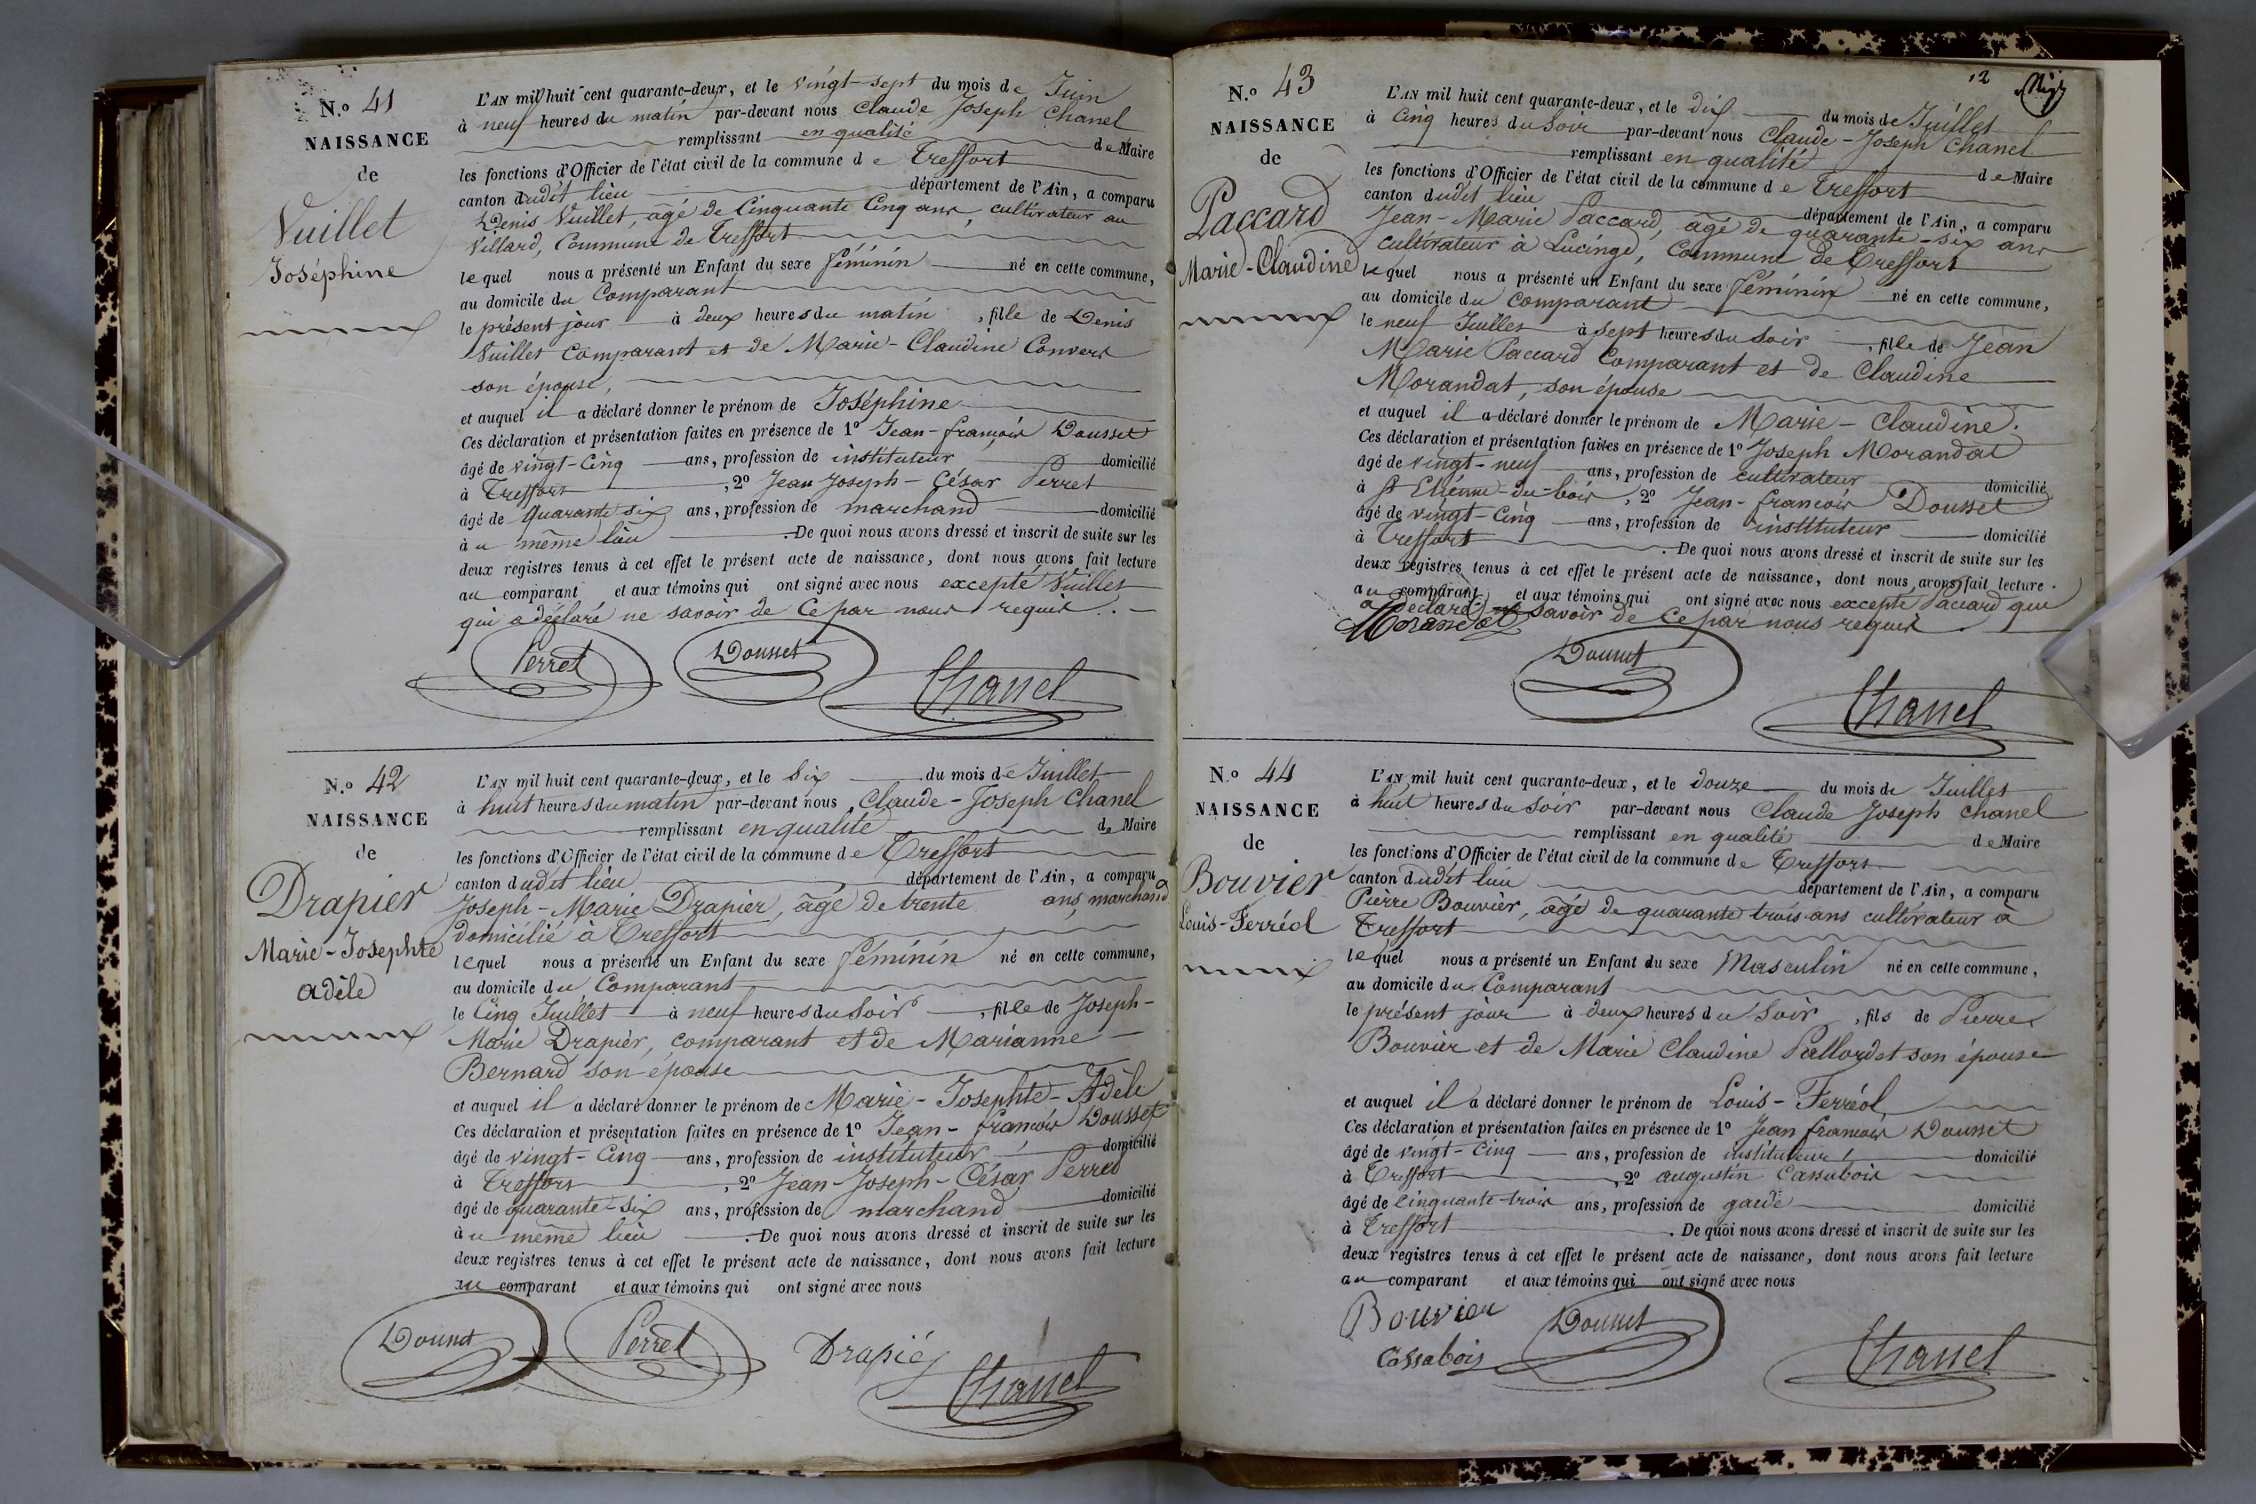 N.o 41
NAISSANCE
de
Vuillet
Joséphine
L'AN mil huit cent quarante-deux, et le vingt-sept du mois de Juin
à neuf heures du matin par-devant nous Claude Joseph Chanel
remplissant en qualité de Maire
les fonctions d'Officier de l'état civil de la commune de Treffort
canton dudit lieu département de l'Ain, a comparu
Denis Vuillet, âgé de Cinquante Cinq ans, cultivateur au
Villard, Commune de Treffort
lequel nous a présenté un Enfant du sexe féminin né en cette commune,
au domicile du Comparant
le présent jour à deux heures du matin, fille de Denis
Vuillet comparant et de Marie-Claudine Convers
son épouse,
et auquel il a déclaré donner le prénom de Joséphine
Ces déclaration et présentation faites en présence de 1o Jean-françois Dousset
âgé de vingt-Cinq ans, profession de instituteur domicilié
à Treffort, 2o Jean Joseph-César Perret
âgé de quarante six ans, profession de marchand domicilié
au même lieu. De quoi nous avons dressé et inscrit de suite sur les
deux registres tenus à cet effet le présent acte de naissance, dont nous avons fait lecture
au comparant et aux témoins qui ont signé avec nous excepté Vuillet
qui a déclaré ne savoir de ce par nous requis.
Perret Dousset Chanel
N.o 42
NAISSANCE
de
Drapier
Marie-Josephte
adèle
L'AN mil huit cent quarante-deux, et le Six du mois de Juillet
à huit heures du matin par-devant nous Claude-Joseph Chanel
remplissant en qualité de Maire
les fonctions d'Officier de l'état civil de la commune de Treffort
canton dudit lieu département de l'Ain, a comparu
Joseph-Marie Drapier, âgé de trente ans, marchand
domicilié à Treffort
lequel nous a présenté un Enfant du sexe féminin né en cette commune,
au domicile du Comparant
le Cinq Juillet à neuf heures du Soir, fille de Joseph-
Marie Drapier, comparant et de Marianne
Bernard son épouse
et auquel il a déclaré donner le prénom de Marie-Josephte-Adèle
Ces déclaration et présentation faites en présence de 1o Jean-françois Dousset
âgé de vingt-Cinq ans, profession de instituteur domicilié
à Treffort, 2o Jean-Joseph-César Perret
âgé de quarante-six ans, profession de marchand domicilié
au même lieu. De quoi nous avons dressé et inscrit de suite sur les
deux registres tenus à cet effet le présent acte de naissance, dont nous avons fait lecture
au comparant et aux témoins qui ont signé avec nous
Dousset Perret Drapié Chanel
12
N.o 43
NAISSANCE
de
Paccard
Marie-Claudine
L'AN mil huit cent quarante-deux, et le dix du mois de Juillet
à Cinq heures du Soir par-devant nous Claude-Joseph Chanel
remplissant en qualité de Maire
les fonctions d'Officier de l'état civil de la commune de Treffort
canton dudit lieu département de l'Ain, a comparu
Jean-Marie Paccard, âgé de quarante-six ans
cultivateur à Lucinge, Commune de Treffort
lequel nous a présenté un Enfant du sexe féminin né en cette commune,
au domicile du comparant
le neuf Juillet à sept heures du soir, fille de Jean
Marie Paccard Comparant et de Claudine
Morandat, son épouse
et auquel il a déclaré donner le prénom de Marie-Claudine.
Ces déclaration et présentation faites en présence de 1o Joseph Morandat
âgé de vingt-neuf ans, profession de cultivateur domicilié
à St Etienne-du-bois, 2o Jean-françois Dousset
âgé de vingt-Cinq ans, profession de instituteur domicilié
à Treffort. De quoi nous avons dressé et inscrit de suite sur les
deux registres tenus à cet effet le présent acte de naissance, dont nous avons fait lecture
au comparant et aux témoins qui ont signé avec nous excepté Paccard qui
a déclaré ne savoir de ce par nous requis.
Morandat Dousset Chanel
N.o 44
NAISSANCE
de
Bouvier
Louis-Ferréol
L'AN mil huit cent quarante-deux, et le douze du mois de Juillet
à huit heures du Soir par-devant nous Claude Joseph Chanel
remplissant en qualité de Maire
les fonctions d'Officier de l'état civil de la commune de Treffort
canton dudit lieu département de l'Ain, a comparu
Pierre Bouvier, âgé de quarante trois ans cultivateur à
Treffort
lequel nous a présenté un Enfant du sexe Masculin né en cette commune,
au domicile du Comparant
le présent jour à deux heures du Soir, fils de Pierre
Bouvier et de Marie Claudine Pallordet son épouse
et auquel il a déclaré donner le prénom de Louis-Ferréol
Ces déclaration et présentation faites en présence de 1o Jean françois Dousset
âgé de vingt-Cinq ans, profession de instituteur domicilié
à Treffort, 2o augustin Cassabois
âgé de Cinquante-trois ans, profession de garde domicilié
à Treffort. De quoi nous avons dressé et inscrit de suite sur les
deux registres tenus à cet effet le présent acte de naissance, dont nous avons fait lecture
au comparant et aux témoins qui ont signé avec nous
Bouvier Dousset Chanel
Cassabois